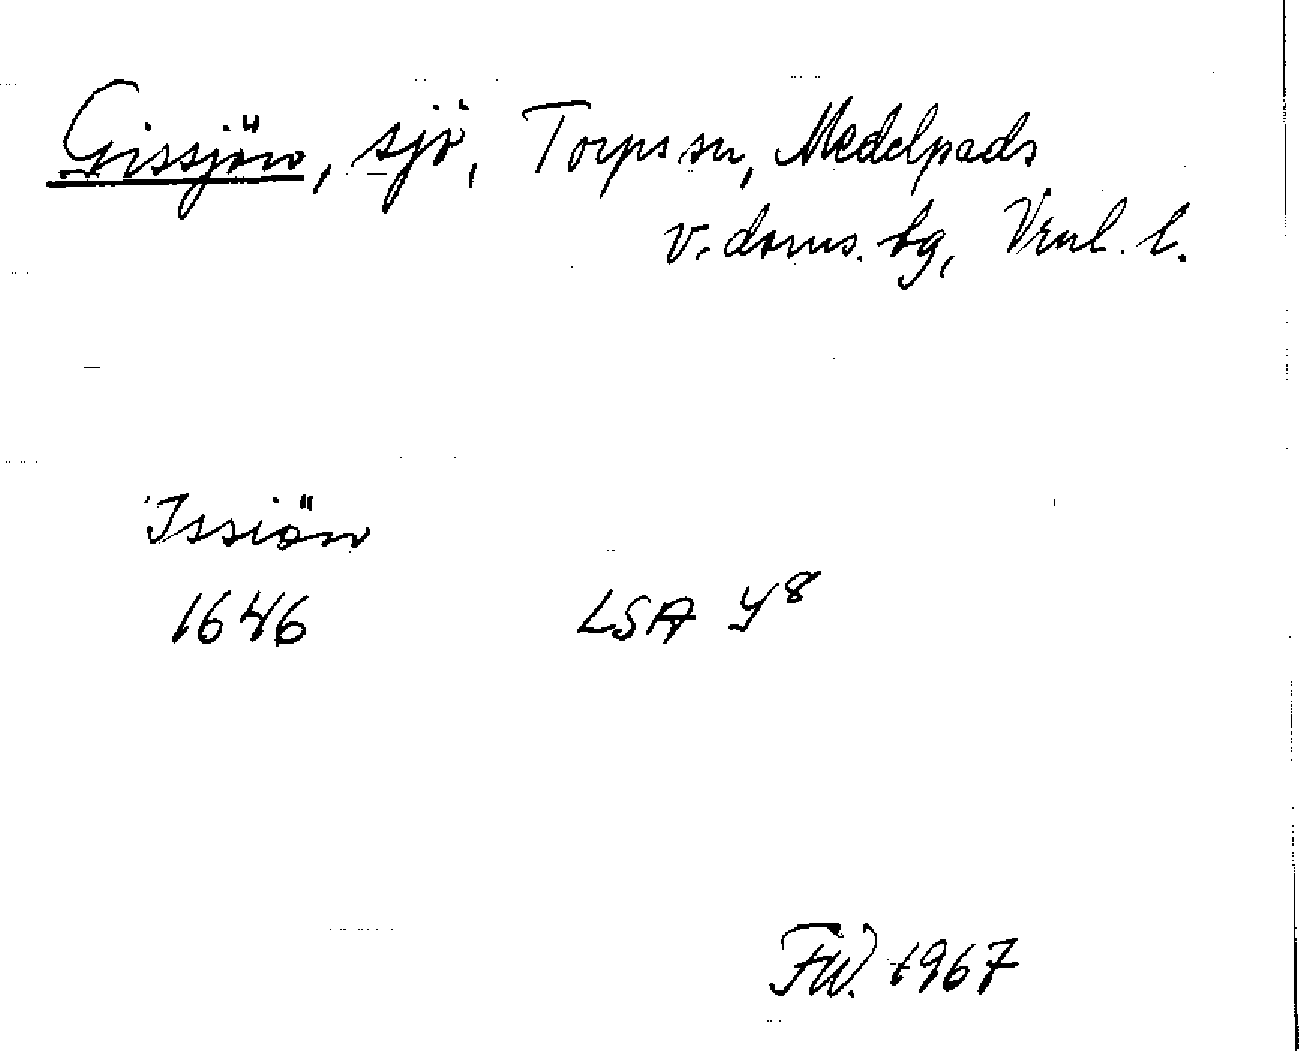 Gissjön, sjö, Torps sn, Medelpads
v. doms. bg, Vrnl. l.
Issiön
1646 LSA Y8
FW. 1967